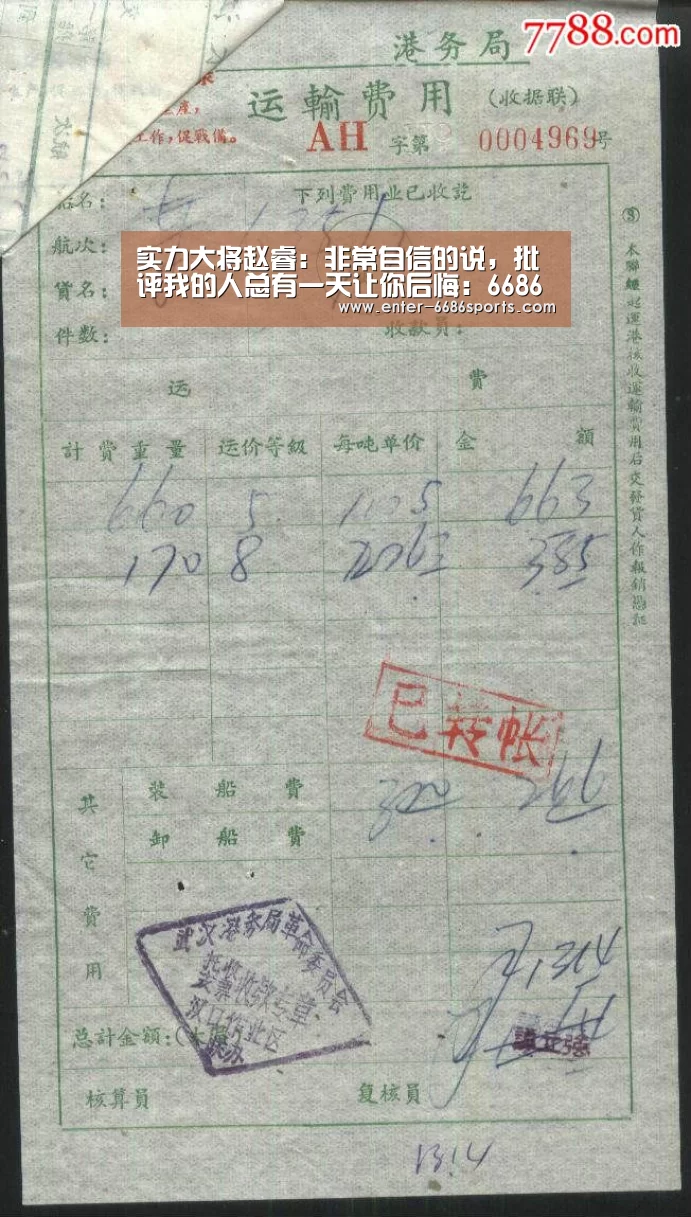 7788.com
港务局
运輸費用 (收据联)
產,
工作,促戰備。
AH 字第 0004969号
船名:
下列費用业已收訖
航次:
实力大将赵睿：非常自信的说，批
评我的人总有一天让你后悔：6686
www.enter-6686sports.com
貨名:
件数:
收款员:
运 費
計費重量 运价等级 每吨单价 金額
660 5 1005 663
170 8 2263 385
已转帐
其它費用
装船費 300 266
卸船費
武汉港务局革命委员会
托收收款专章
汉口作业区
1314
总計金額:
核算員 复核員
1314
③ 本聯經起運港核收運輸費用后交發貨人作報銷憑証